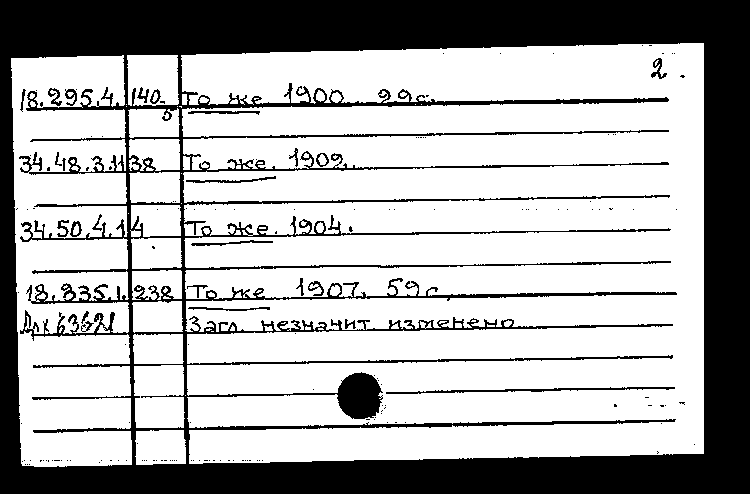 2.
18.295.4. 140-5 То же 1900. 29 с.
34.48.3.1138 То же. 1909.
34.50.4.14 То же. 1904.
18.335.1.238 То же 1907. 59 с.
63621 Загл. незначит изменено